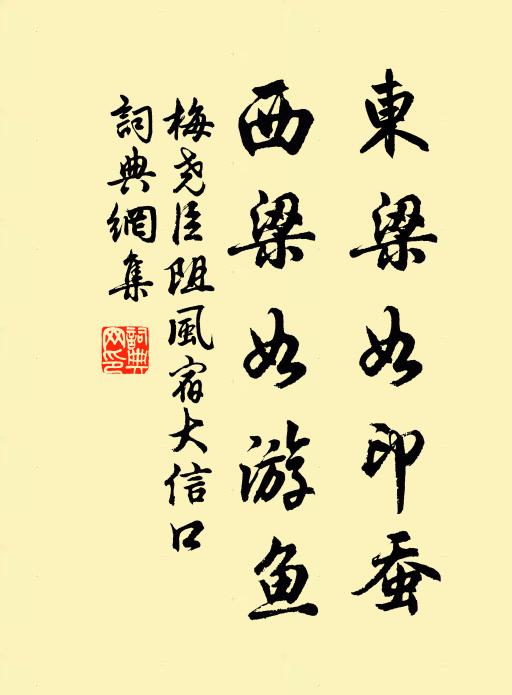 東梁如印蚕
西梁如游鱼
梅尧臣阻風宿大信口
詞典網集
詞典网印